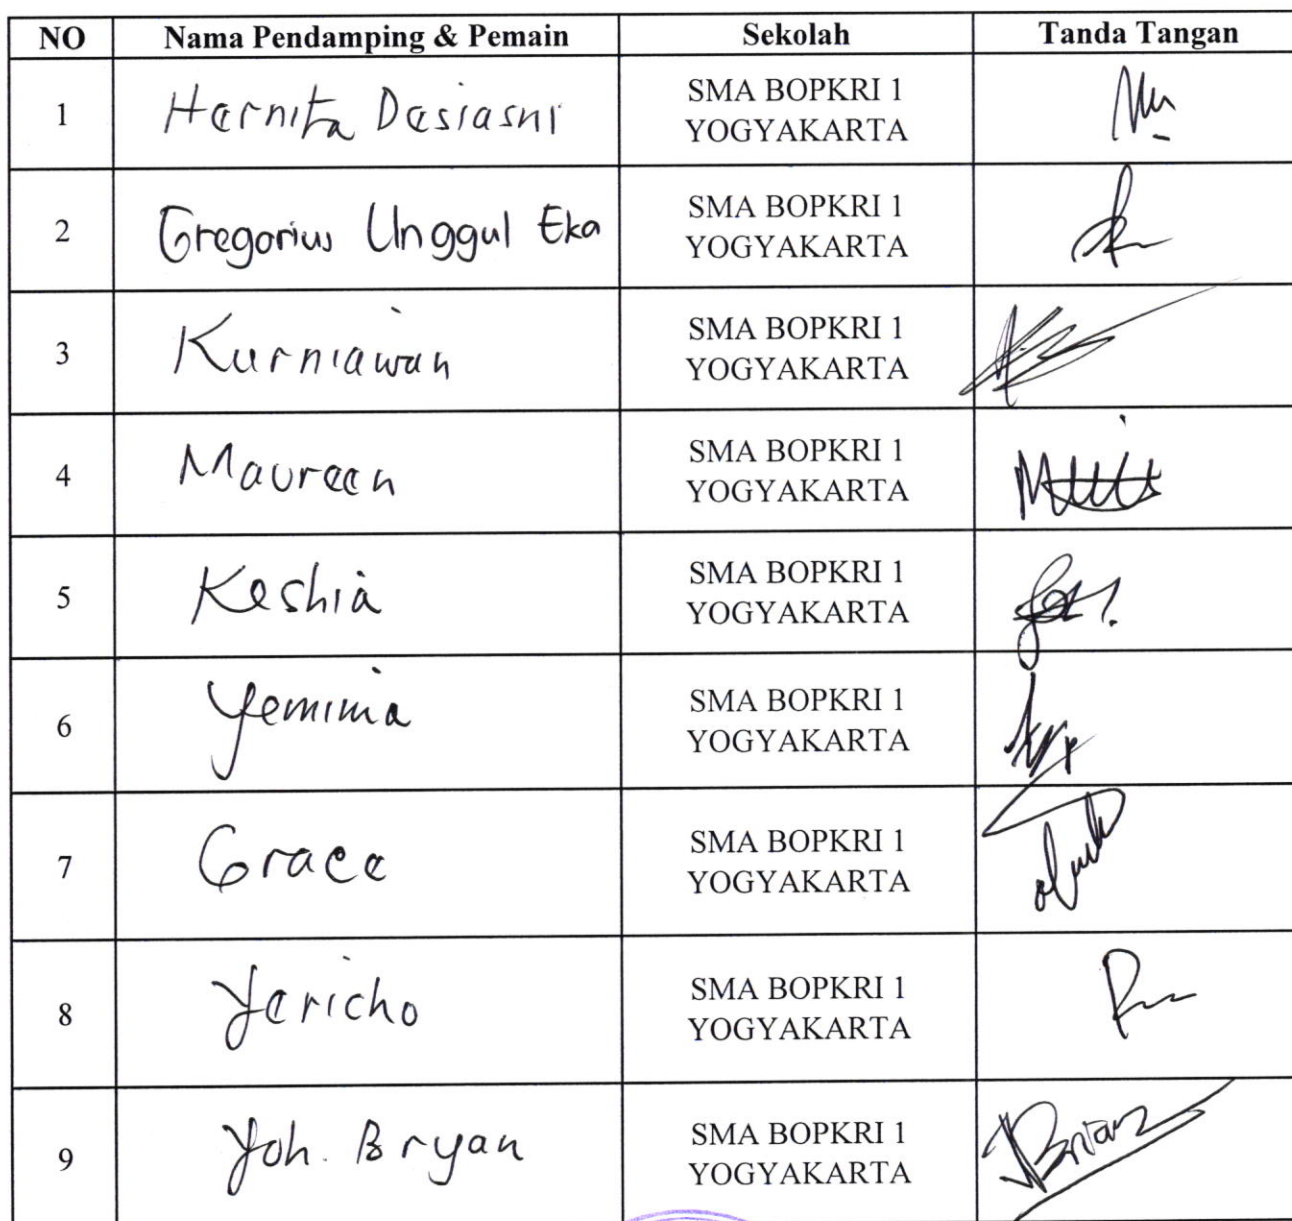 NO Nama Pendamping & Pemain Sekolah Tanda Tangan
1 Harnita Dasiasni SMA BOPKRI 1
YOGYAKARTA
2 Gregorius Unggul Eka SMA BOPKRI 1
YOGYAKARTA
3 Kurniawan SMA BOPKRI 1
YOGYAKARTA
4 Maureen SMA BOPKRI 1
YOGYAKARTA
5 Keshia SMA BOPKRI 1
YOGYAKARTA
6 Yemima SMA BOPKRI 1
YOGYAKARTA
7 Grace SMA BOPKRI 1
YOGYAKARTA
8 Jericho SMA BOPKRI 1
YOGYAKARTA
9 Yoh. Bryan SMA BOPKRI 1
YOGYAKARTA